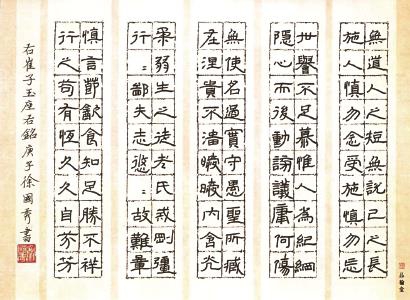 無道人之短無說己之長
施人慎勿念受施慎勿忘
世譽不足慕惟人為紀綱
隱心而後動謗議庸何傷
無使名過實守愚聖所臧
在涅貴不淄曖曖內含光
柔弱生之徒老氏戒剛彊
行:鄙夫志悠:故難量
慎言節飲食知足勝不祥
行之苟有恆久久自芬芳
右崔子玉座右銘庚子徐國秀書